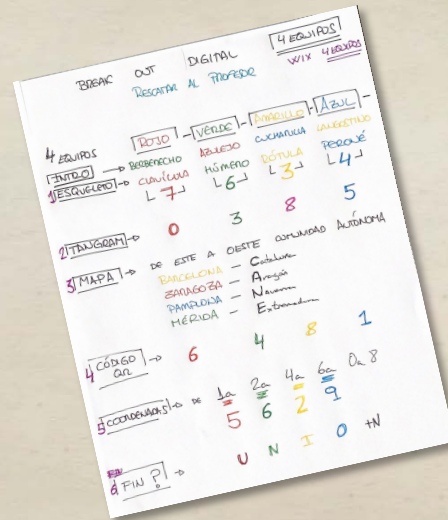 BREAK OUT DIGITAL 4 EQUIPOS
RESCATAR AL PROFESOR WIX 4 EQUIPOS
4 EQUIPOS ROJO - VERDE - AMARILLO - AZUL -
INTRO → BERBENECHO AZULEJO CUCHARILLA LANGOSTINO
1 ESQUELETO → CLAVÍCULA HÚMERO RÓTULA PERONÉ
7 6 3 4
2 TANGRAM → 0 3 8 5
3 MAPA → DE ESTE A OESTE COMUNIDAD AUTÓNOMA
BARCELONA - Cataluña
ZARAGOZA - Aragón
PAMPLONA - Navarra
MÉRIDA - Extremadura
4 CÓDIGO QR → 6 4 8 1
5 COORDENADAS → DE 1a 2a 4a 6a 0a 8
5 6 2 9
FIN
6 FIN ? → U N I O +N